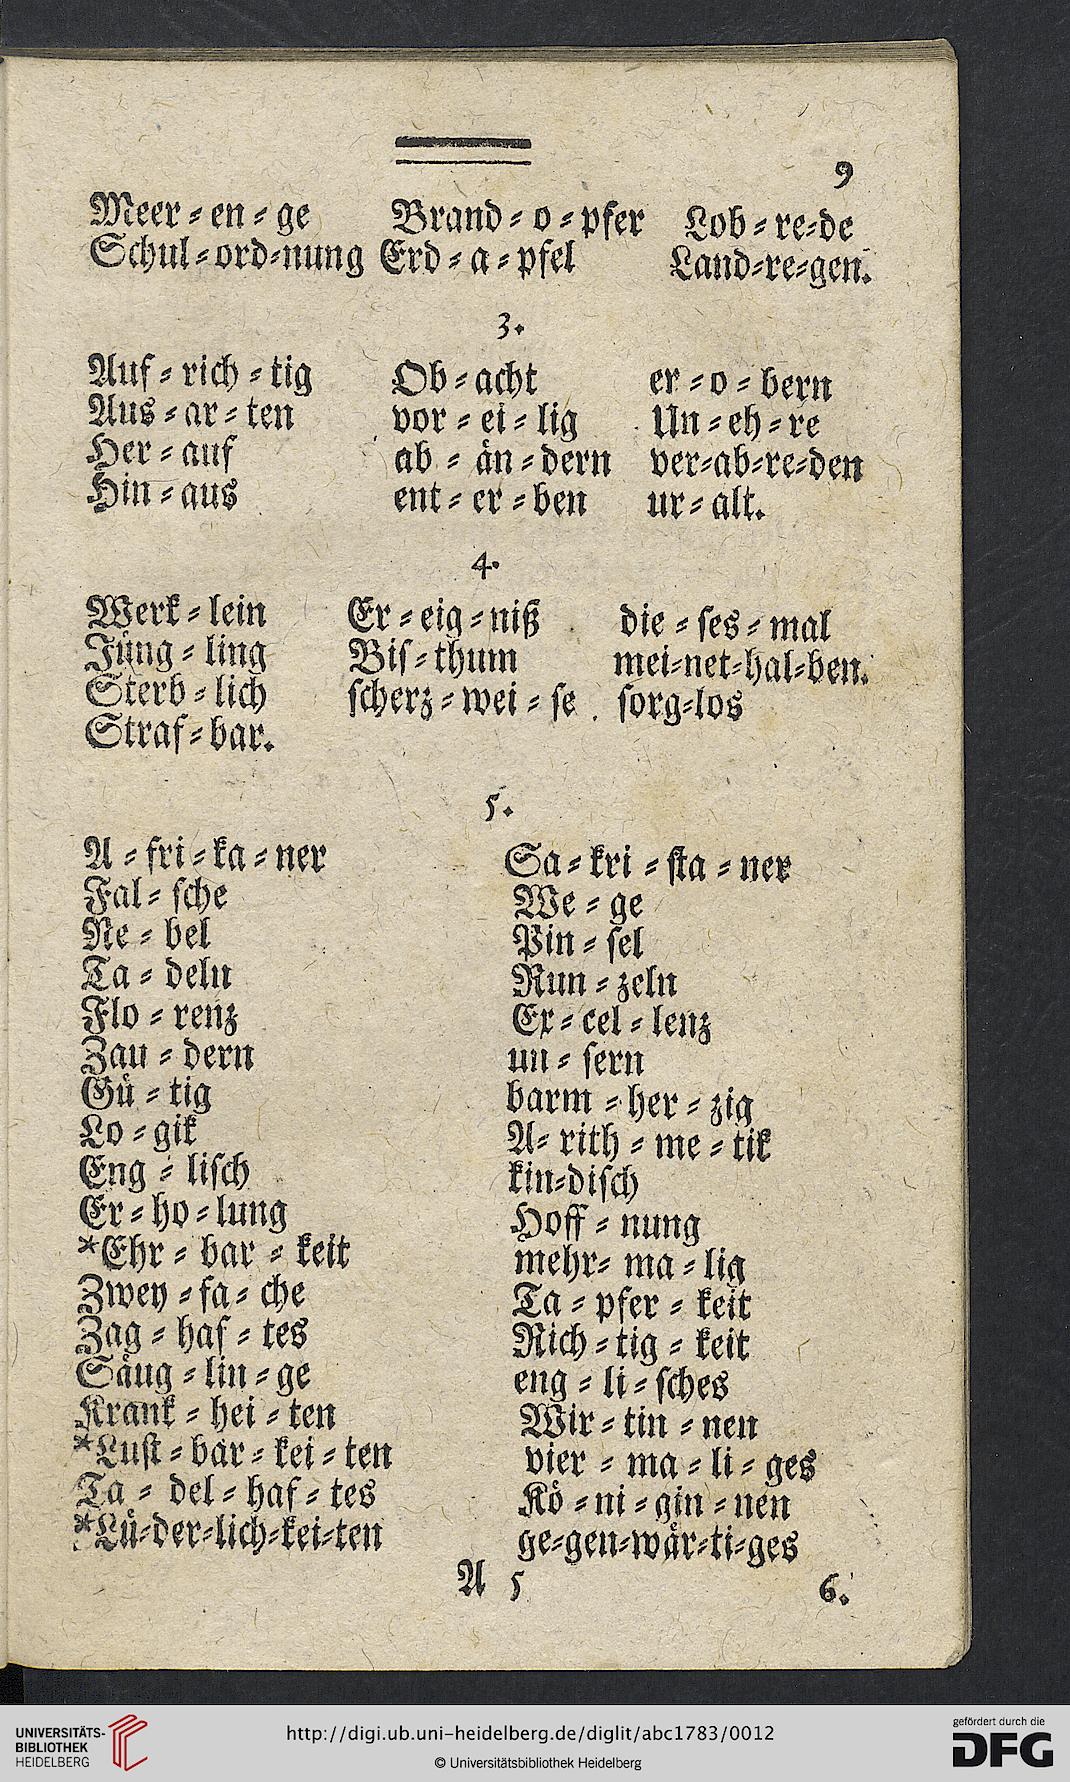 9
Meer = en = ge Brand = o = pfer Lob = re=de
Schul = ord=nung Erd = a = pfel Land=re=gen.
3.
Auf = rich = tig Ob = acht er = o = bern
Aus = ar = ten vor = ei = lig Un = eh = re
Her = auf ab = än = dern ver=ab=re=den
Hin = aus ent = er = ben ur = alt.
4.
Werk = lein Er = eig = niß die = ses = mal
Jüng = ling Bis = thum mei=net=hal=ben.
Sterb = lich scherz = wei = se sorg=los
Straf = bar.
5.
A = fri = ka = ner Sa = kri = sta = ner
Fal = sche We = ge
Ne = bel Pin = sel
Ta = deln Run = zeln
Flo = renz Ex = cel = lenz
Zau = dern un = sern
Gü = tig barm = her = zig
Lo = gik A= rith = me = tik
Eng = lisch kin=disch
Er = ho = lung Hoff = nung
*Ehr = bar = keit mehr= ma = lig
Zwey = fa = che Ta = pfer = keit
Zag = haf = tes Rich = tig = keit
Säug = lin = ge eng = li = sches
Krank = hei = ten Wir = tin = nen
*Lust = bar = kei = ten vier = ma = li = ges
Ta = del = haf = tes Kö = ni = gin = nen
*Lü=der=lich=kei=ten ge=gen=wär=ti=ges
A 5 6.
UNIVERSITÄTS-
BIBLIOTHEK
HEIDELBERG
http://digi.ub.uni-heidelberg.de/diglit/abc1783/0012
© Universitätsbibliothek Heidelberg
gefördert durch die
DFG